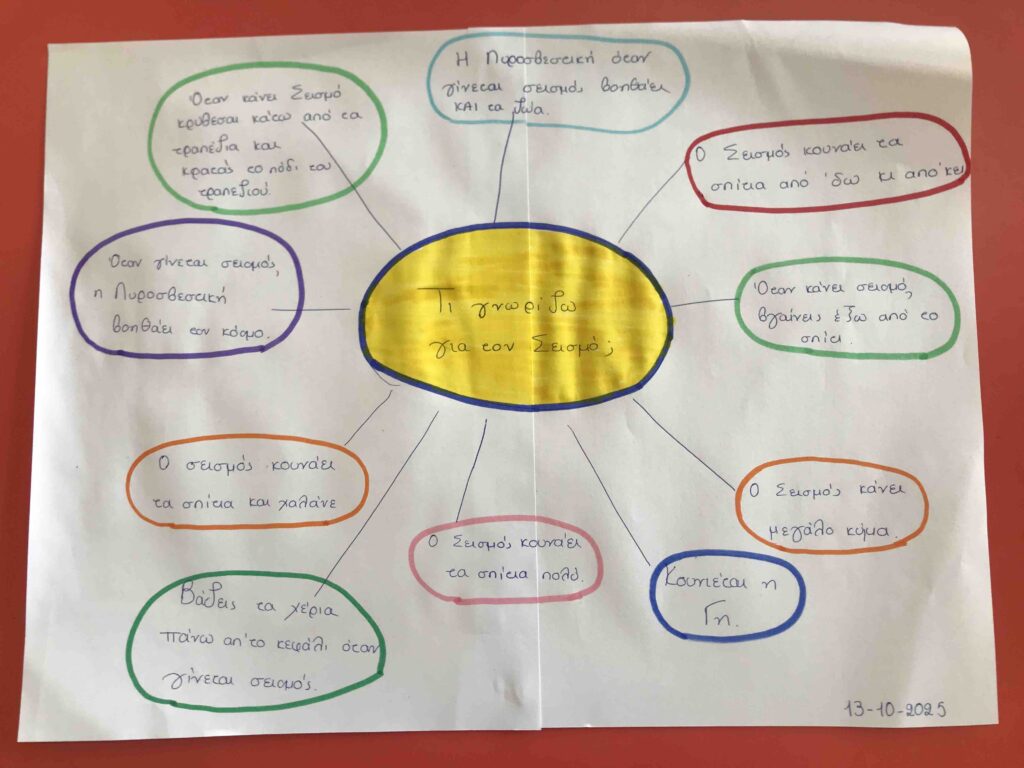 Η Πυροσβεστική όταν
γίνεται σεισμό, βοηθάει
ΚΑΙ τα ζώα.
Όταν κάνει Σεισμό
κρύβεσαι κάτω από τα
τραπέζια και
κρατάς το πόδι του
τραπεζιού
Ο Σεισμός κουνάει τα
σπίτια από 'δω κι από'κει
Όταν γίνεται σεισμός,
η Πυροσβεστική
βοηθάει τον κόσμο.
Τι γνωρίζω
για τον Σεισμό;
Όταν κάνει σεισμό,
βγαίνεις έξω από το
σπίτι.
Ο σεισμός κουνάει
τα σπίτια και χαλάνε
Ο Σεισμός κάνει
μεγάλο κύμα.
Ο Σεισμός κουνάει
τα σπίτια πολύ.
Κουνιέται η
Γη.
Βάζεις τα χέρια
πάνω απ'το κεφάλι όταν
γίνεται σεισμός.
13-10-2025